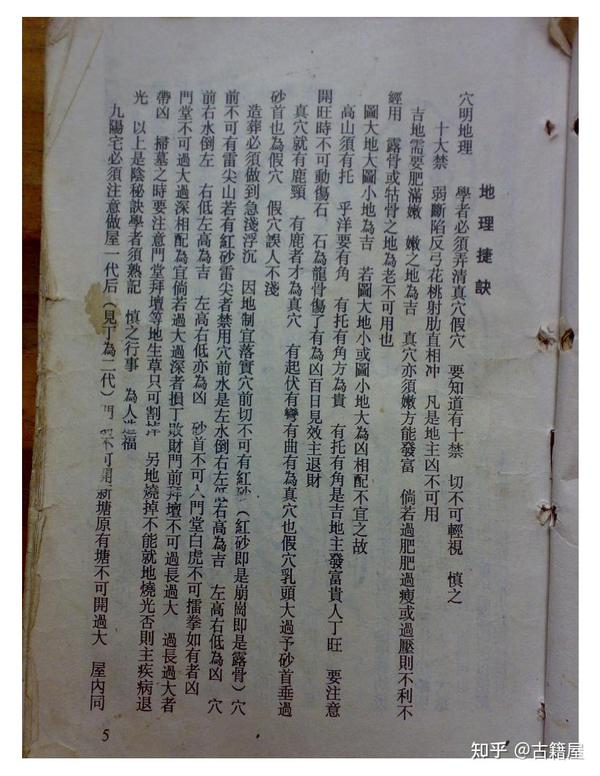 地理捷訣
穴明地理　學者必須弄清真穴假穴　要知道有十禁　切不可輕視　慎之
十大禁　弱斷陷反弓花桃射肋直相冲　凡是地主凶不可用
吉地需要肥滿嫩　嫩之地為吉　真穴亦須嫩方能發富　倘若過肥肥過瘦或過壓則不利不
經用　露骨或牯骨之地為老不可用也
圖大地大圖小地為吉　若圖大地小或圖小地大為凶相配不宜之故
高山須有托　平洋要有角　有托有角方為貴　有托有角是吉地主發富貴人丁旺　要注意
開旺時不可動傷石　石為龍骨傷了有為凶百日見效主退財
真穴就有鹿頸　有鹿者才為真穴　有起伏有彎有曲有為真穴也假穴乳頭大過予砂首垂過
砂首也為假穴　假穴誤人不淺
造葬必須做到急淺浮沉　因地制宜落實穴前切不可有紅砂（紅砂即是崩崗即是露骨）穴
前不可有雷尖山若有紅砂雷尖者禁用穴前水是左水倒右左低右高為吉　左高右低為凶　穴
前右水倒左　右低左高為吉　左高右低亦為凶　砂首不可入門堂白虎不可擂拳如有者凶
門堂不可過大過深相配為宜倘若過大過深者損丁敗財門前拜壇不可過長過大　過長過大者
帶凶　掃墓之時要注意門堂拜壇等地生草只可割掉　另地燒掉不能就地燒光否則主疾病退
光　以上是陰秘訣學者須熟記　慎之行事　為人造福
九陽宅必須注意做屋一代后（見丁為二代）門　不可開新塘原有塘不可開過大　屋内同
5
知乎 @古籍屋